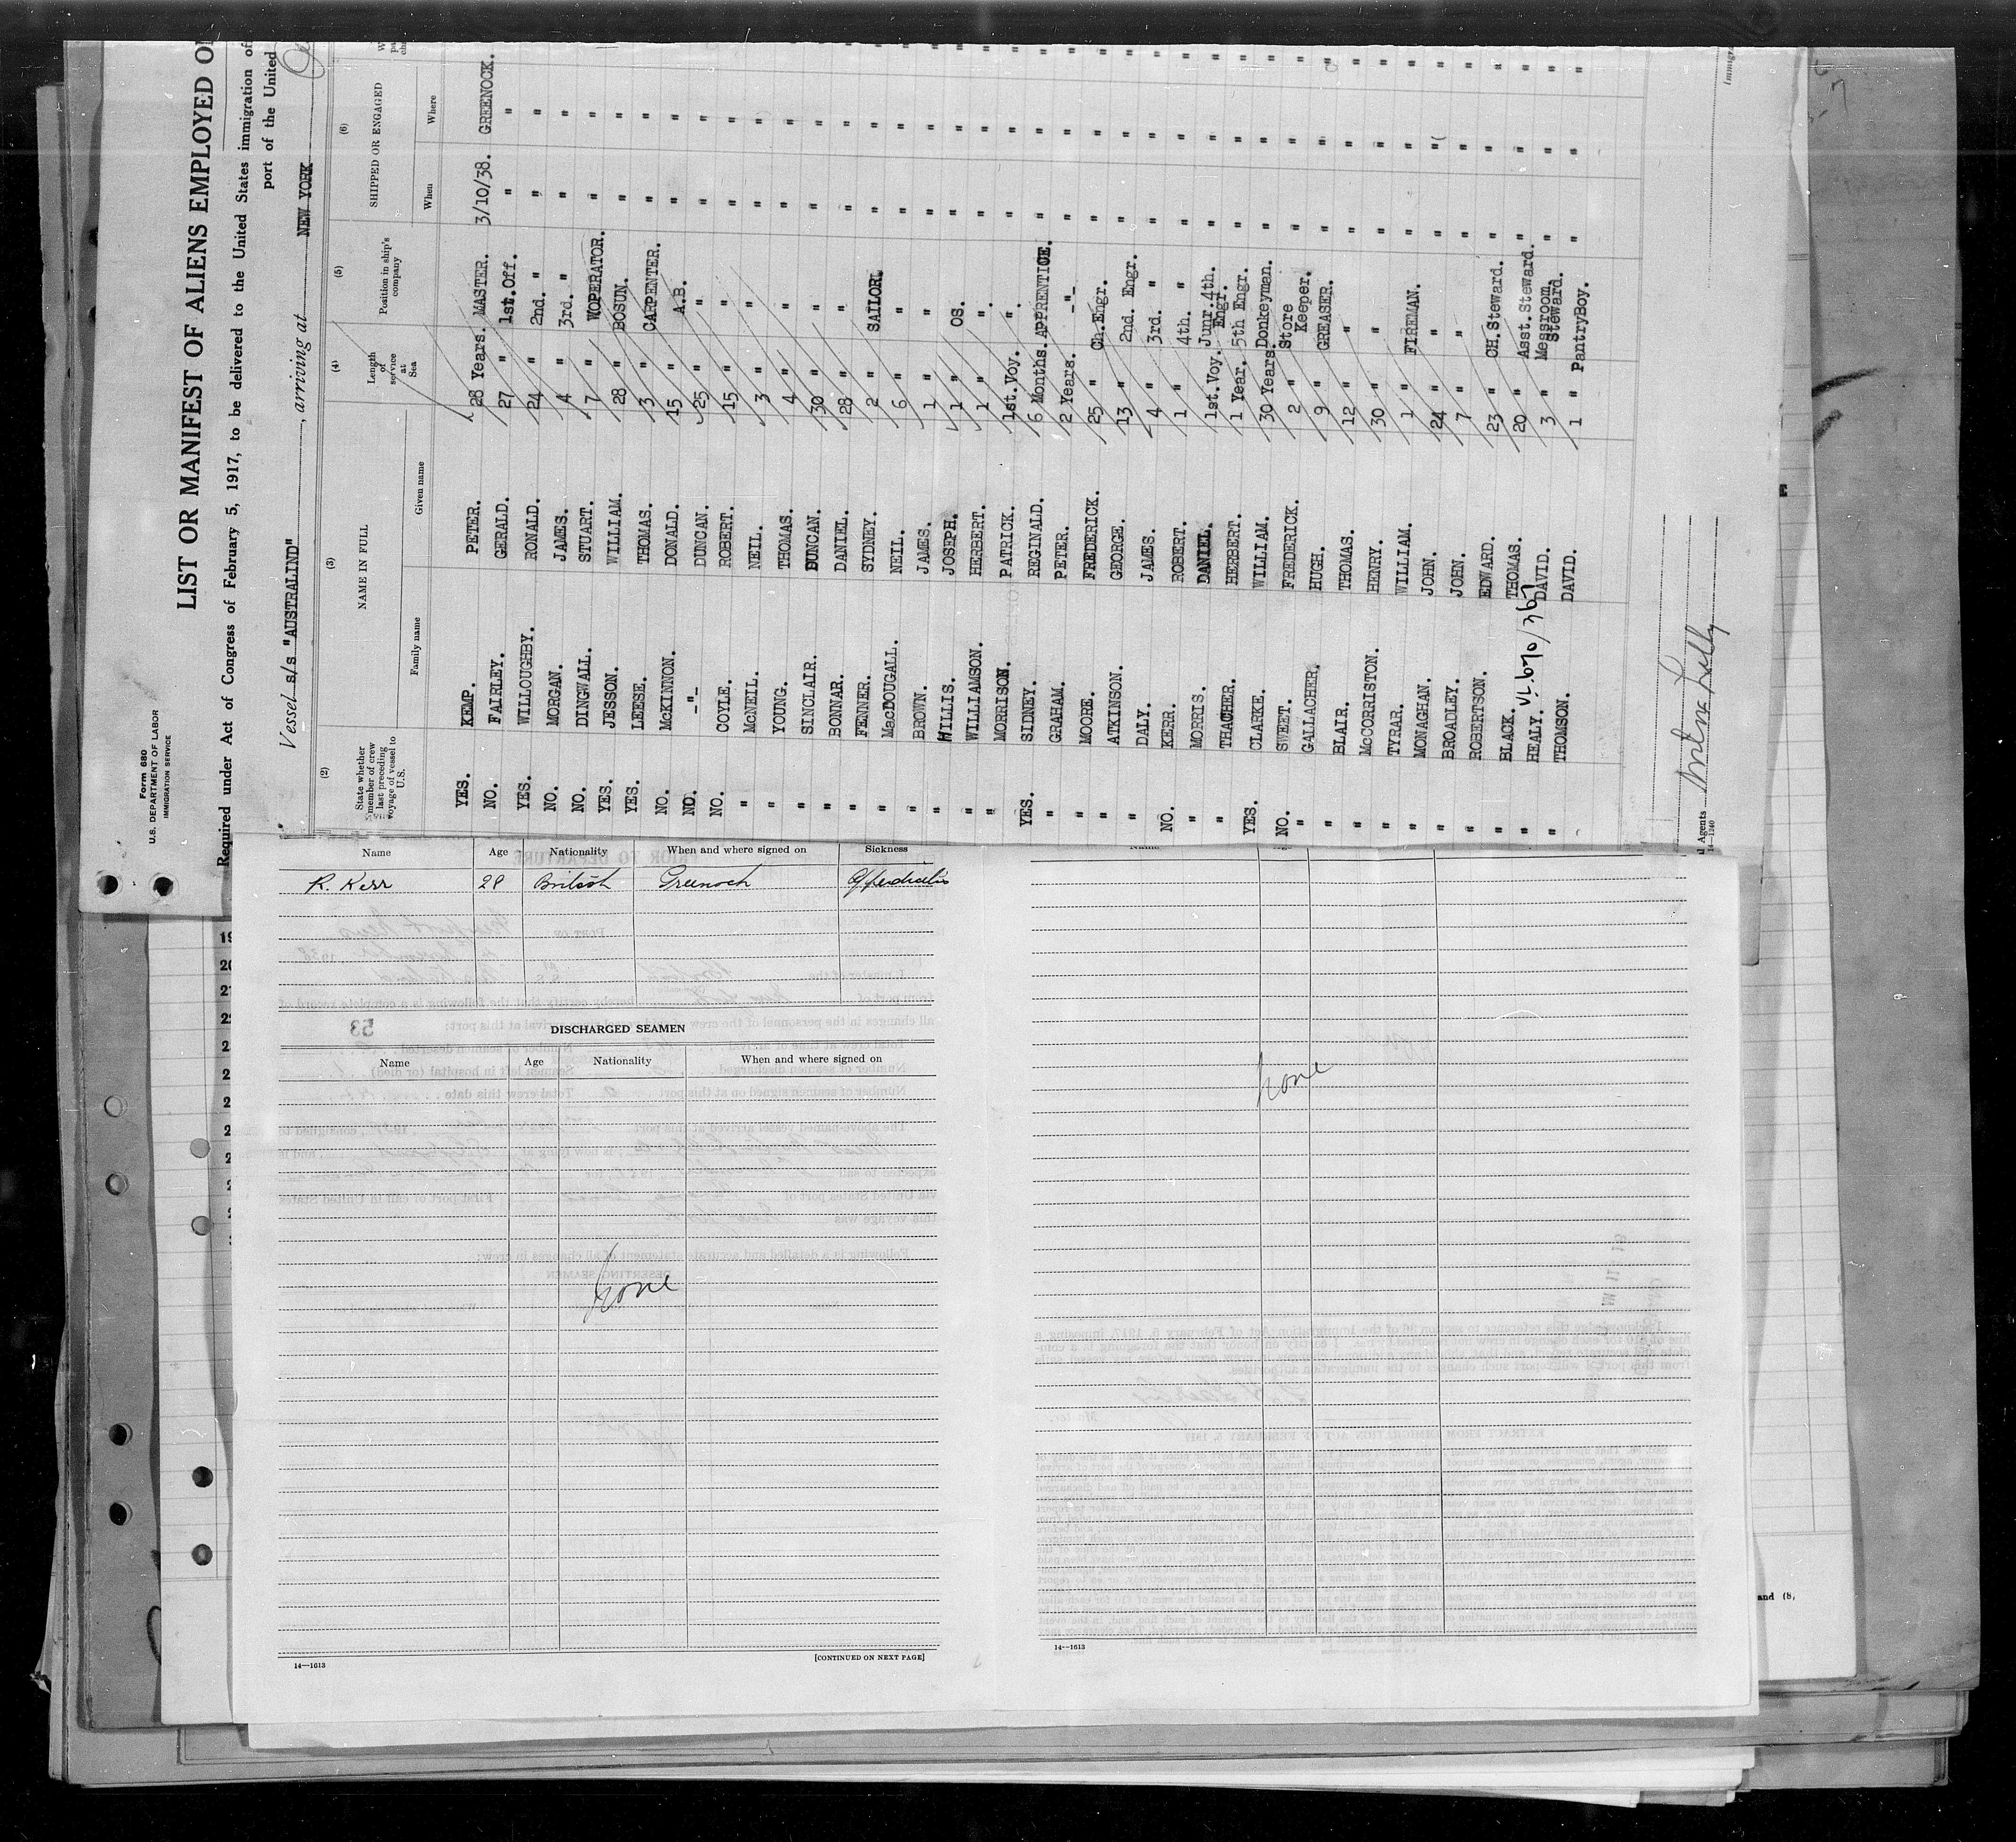 Form 680
U.S. DEPARTMENT OF LABOR
IMMIGRATION SERVICE
LIST OR MANIFEST OF ALIENS EMPLOYED ON
Required under Act of Congress of February 5, 1917, to be delivered to the United States immigration of
port of the United
Vessel s/s "AUSTRALIND", arriving at NEW YORK
(2) (3) (4) (5) (6)
State whether member of crew last preceding voyage of vessel to U.S. NAME IN FULL Family name Given name Length of service at Sea Position in ship's company SHIPPED OR ENGAGED When Where
YES. KEMP. PETER. 28 Years. MASTER. 3/10/38. GREENOCK.
NO. FAIRLEY. GERALD. 27 " 1st.Off. " "
YES. WILLOUGHBY. RONALD. 24 " 2nd. " " "
NO. MORGAN. JAMES. 4 " 3rd. " " "
NO. DINGWALL. STUART. 7 " WOPERATOR. " "
YES. JESSON. WILLIAM. 28 " BOSUN. " "
YES. LEESE. THOMAS. 3 " CARPENTER. " "
NO. McKINNON. DONALD. 15 " A.B. " "
NO. -"- DUNCAN. 25 " " " "
NO. COYLE. ROBERT. 15 " " " "
" McNEIL. NEIL. 3 " " " "
" YOUNG. THOMAS. 4 " " " "
" SINCLAIR. DUNCAN. 30 " " " "
" BONNAR. DANIEL. 28 " " " "
" FENNER. SYDNEY. 2 " SAILOR. " "
" MacDOUGALL. NEIL. 6 " " " "
" BROWN. JAMES. 1 " " " "
" HILLIS. JOSEPH. 1 " OS. " "
" WILLIAMSON. HERBERT. 1 " " " "
" MORRISON. PATRICK. 1st.Voy. " " "
YES. SIDNEY. REGINALD. 6 Months. APPRENTICE. " "
" GRAHAM. PETER. 2 Years. -"- " "
" MOORE. FREDERICK. 25 " Ch.Engr. " "
" ATKINSON. GEORGE. 13 " 2nd. Engr. " "
" DALY. JAMES. 4 " 3rd. " " "
NO. KERR. ROBERT. 1 " 4th. " " "
" MORRIS. DANIEL. 1st.Voy. Junr.4th. Engr. " "
" THACHER. HERBERT. 1 Year. 5th Engr. " "
YES. CLARKE. WILLIAM. 30 Years. Donkeyman. " "
NO. SWEET. FREDERICK. 2 " Store Keeper. " "
" GALLACHER. HUGH. 9 " GREASER. " "
" BLAIR. THOMAS. 12 " " " "
" McCORRISTON. HENRY. 30 " " " "
" TYRAR. WILLIAM. 1 " FIREMAN. " "
" MONAGHAN. JOHN. 24 " " " "
" BROADLEY. JOHN. 7 " " " "
" ROBERTSON. EDWARD. 23 " CH. Steward. " "
" BLACK. THOMAS. 20 " Asst. Steward. " "
" HEALY. DAVID. 3 " Messroom Steward. " "
" THOMSON. DAVID. 1 " PantryBoy. " "
l Agents
14—1240
Immigra
Name Age Nationality When and where signed on Sickness
R. Kerr 28 British Greenock
DISCHARGED SEAMEN
Name Age Nationality When and where signed on
none
14—1613
[CONTINUED ON NEXT PAGE]
none
14—1613
19
20
21
and (8,